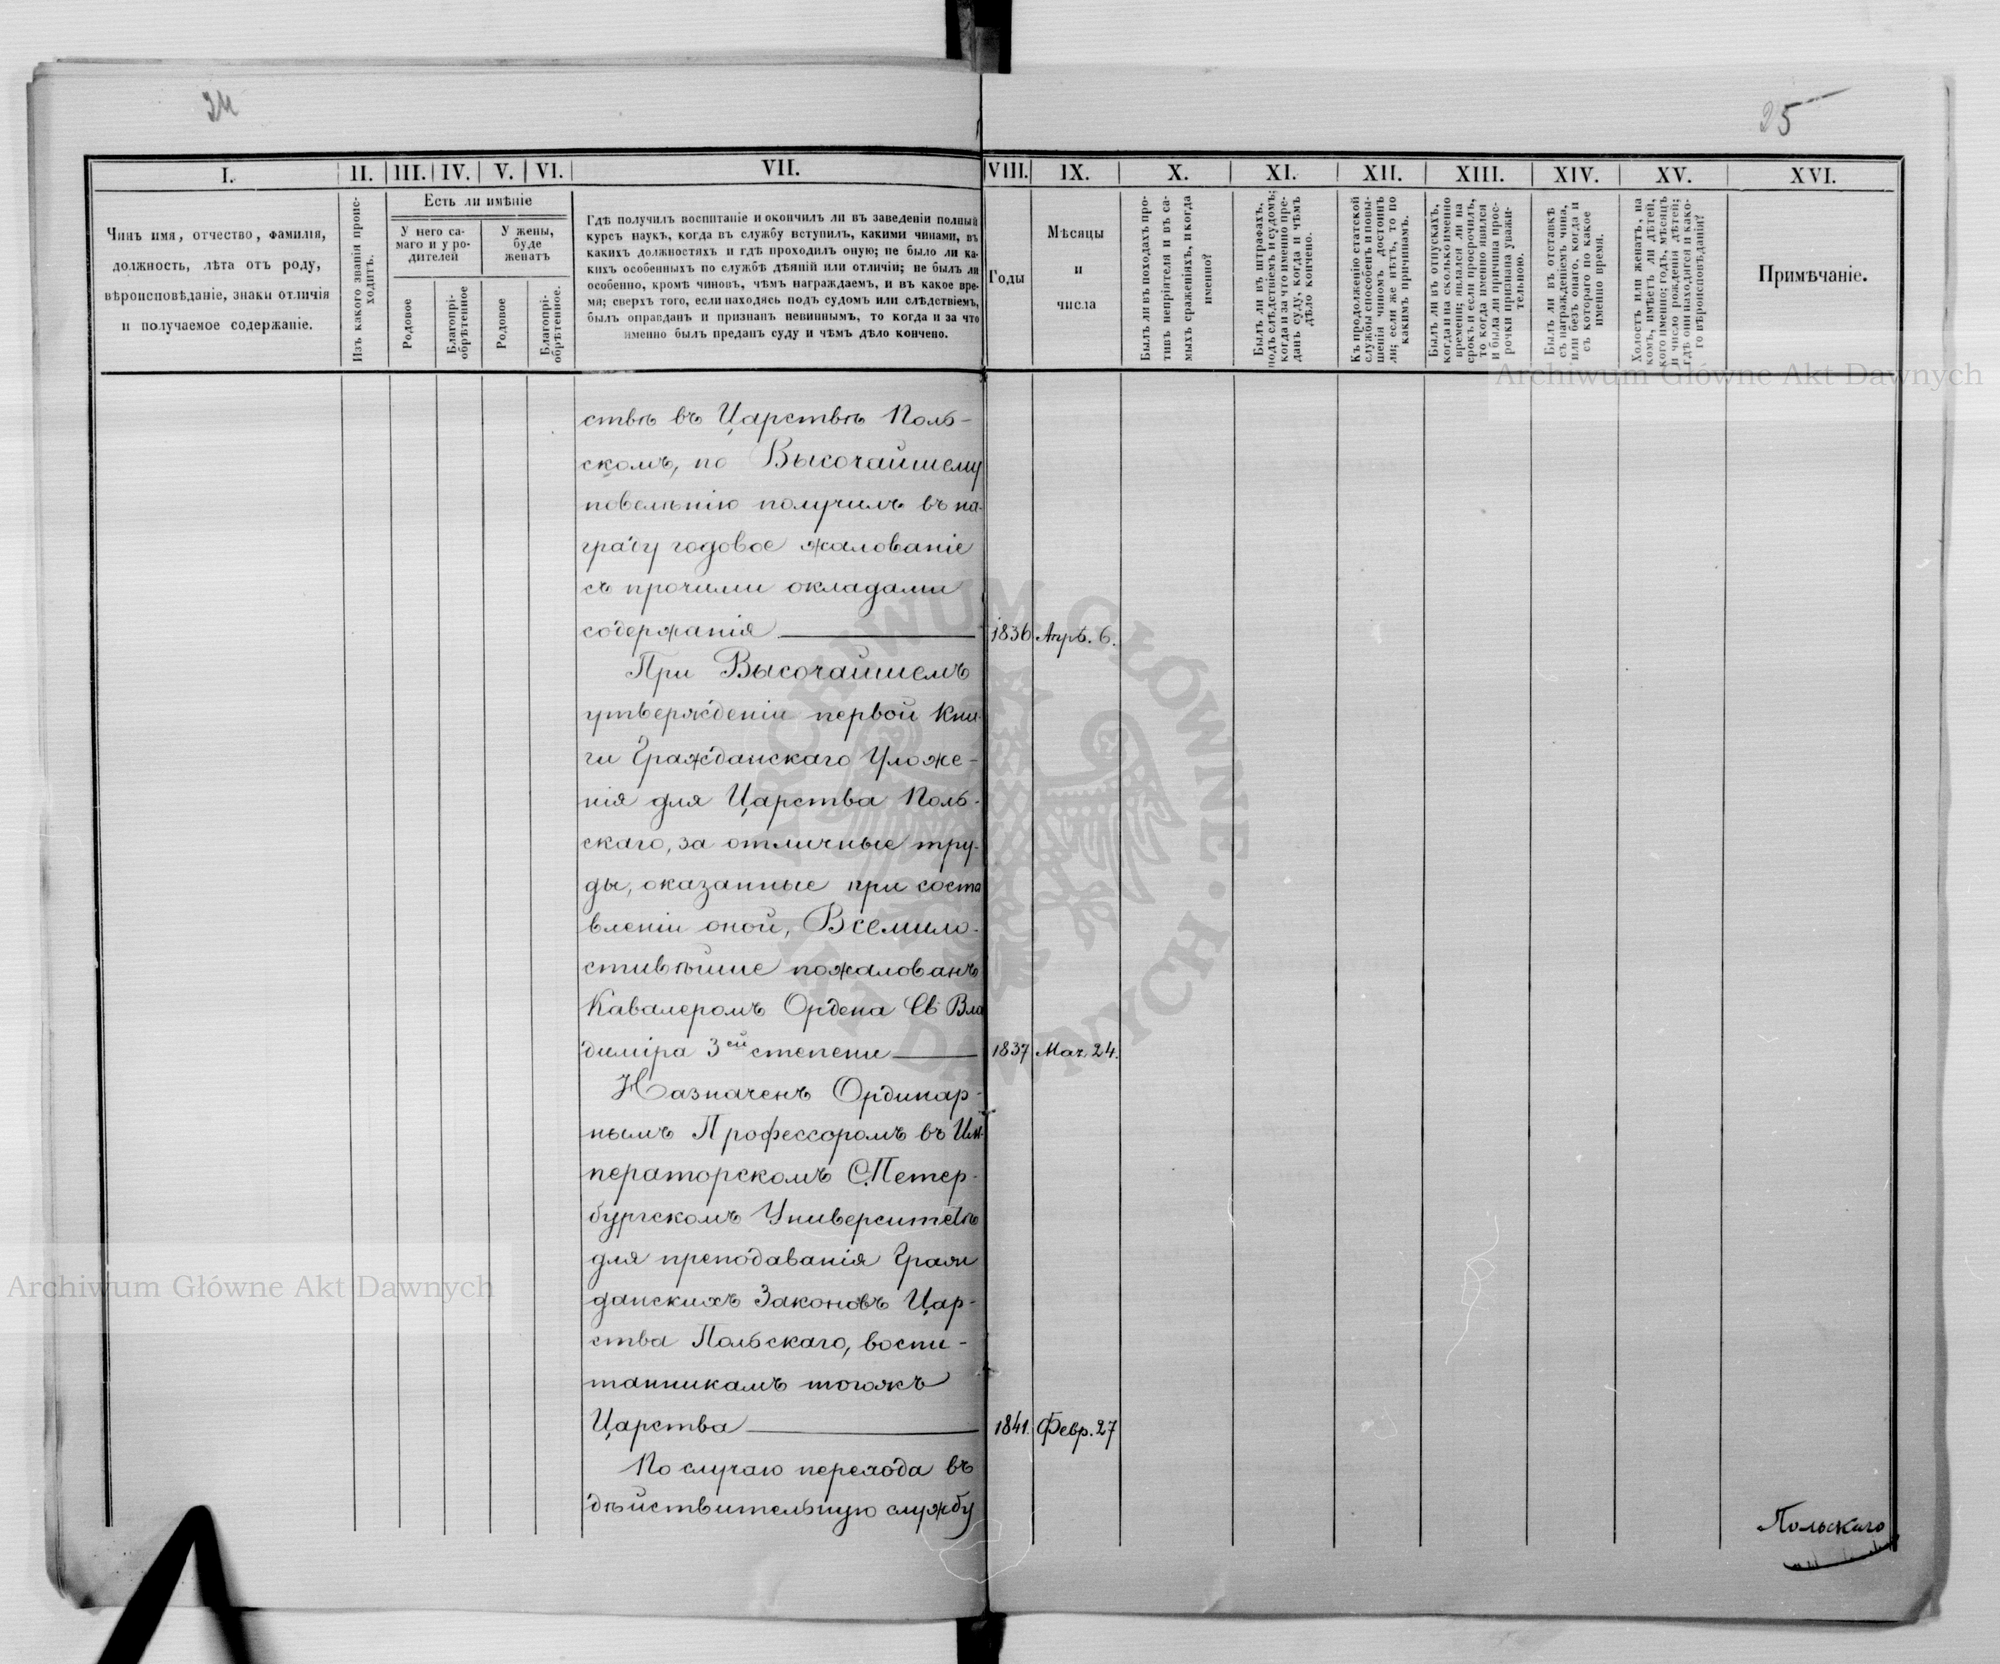 24
25
I.
II.
III.
IV.
V.
VI.
VII.
VIII.
IX.
X.
XI.
XII.
XIII.
XIV.
XV.
XVI.
Чинъ имя, отчество, фамилія,
должность, лѣта отъ роду,
вѣроисповѣданіе, знаки отличія
и получаемое содержаніе.
Изъ какого званія проис-
ходитъ.
Есть ли имѣніе
У него са-
маго и у ро-
дителей
У жены,
буде
женатъ
Родовое
Благопрі-
обрѣтенное
Родовое
Благопрі-
обрѣтенное.
Гдѣ получилъ воспитаніе и окончилъ ли въ заведеніи полный
курсъ наукъ, когда въ службу вступилъ, какими чинами, въ
какихъ должностяхъ и гдѣ проходилъ оную; не было ли ка-
кихъ особенныхъ по службѣ дѣяній или отличій; не былъ ли
особенно, кромѣ чиновъ, чѣмъ награждаемъ, и въ какое вре-
мя; сверхъ того, если находясь подъ судомъ или слѣдствіемъ,
былъ оправданъ и признанъ невиннымъ, то когда и за что
именно былъ преданъ суду и чѣмъ дѣло кончено.
Годы
Мѣсяцы
и
числа
Былъ ли въ походахъ про-
тивъ непріятеля и въ са-
мыхъ сраженіяхъ, и когда
именно?
Былъ ли въ штрафахъ,
подъ слѣдствіемъ и судомъ;
когда и за что именно пре-
данъ суду, когда и чѣмъ
дѣло кончено.
Къ продолженію статской
службы способенъ и повы-
шенія чиномъ достоинъ
ли; если же нѣтъ, то по
какимъ причинамъ.
Былъ ли въ отпускахъ,
когда и на сколько именно
времени; являлся ли на
срокъ и если просрочилъ,
то когда именно явился
и была ли причина прос-
рочки признана уважи-
тельною.
Былъ ли въ отставкѣ
съ награжденіемъ чина,
или безъ онаго, когда и
съ котораго по какое
именно время.
Холостъ или женатъ, на
комъ, имѣетъ ли дѣтей,
кого именно; годъ, мѣсяцъ
и число рожденія дѣтей;
гдѣ они находятся и како-
го вѣроисповѣданія?
Примѣчаніе.
Archiwum Główne Akt Dawnych
ствѣ въ Царствѣ Поль-
скомъ, по Высочайшему
повелѣнію получилъ въ на-
граду годовое жалованіе
съ прочими окладами
содержанія 1836 Апрѣ. 6.
При Высочайшемъ
утвержденіи первой Кни-
ги Гражданскаго Уложе-
нія для Царства Поль-
скаго, за отличные тру-
ды, оказанные при соста
вленіи оной, Всемило-
стивѣйше пожалованъ
Кавалеромъ Ордена Св Вла
диміра 3ей степени 1837 Мар. 24.
Назначенъ Ординар-
нымъ Профессоромъ въ Им-
ператорскомъ С.Петер-
бургскомъ Университетѣ
для преподаванія Граж
данскихъ Законовъ Цар-
ства Польскаго, воспи-
танникамъ тогожъ
Царства 1841. Февр. 27
По случаю перехода въ
дѣйствительную службу
Польскаго
ARCHIWUM GŁÓWNE AKT DAWNYCH
Archiwum Główne Akt Dawnych